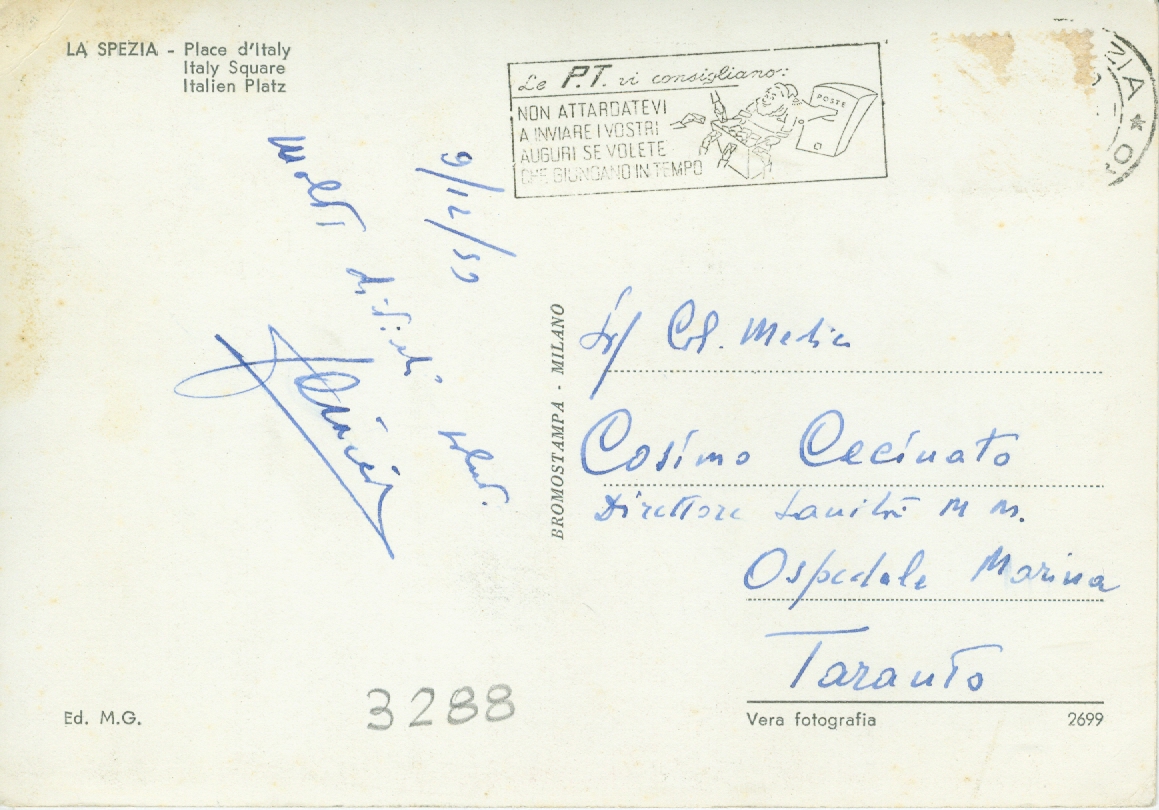 LA SPEZIA - Place d'Italy
Italy Square
Italien Platz
Le P.T. vi consigliano:
NON ATTARDATEVI
A INVIARE I VOSTRI
AUGURI SE VOLETE
CHE GIUNGANO IN TEMPO
POSTE
ZIA * O
9/12/59
Molti distinti salut.
BROMOSTAMPA - MILANO
Col. Medico
Cosimo Cecinato
Direttore Sanità M M.
Ospedale Marina
Taranto
Ed. M.G.
3288
Vera fotografia
2699